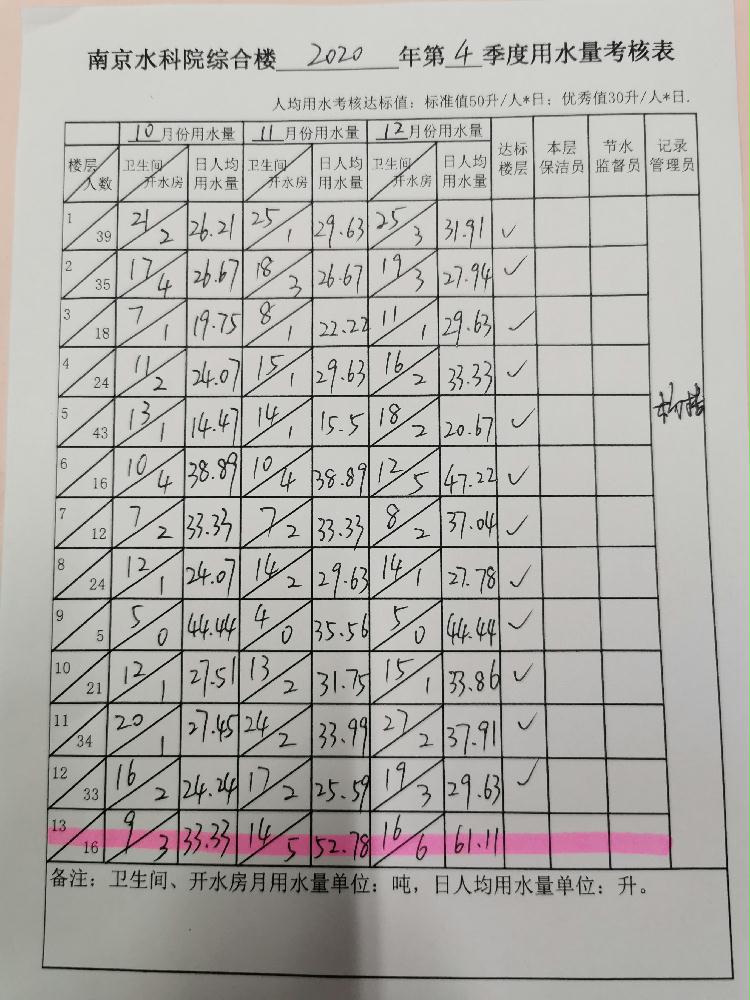 南京水科院综合楼 2020 年第 4 季度用水量考核表
人均用水考核达标值：标准值50升/人*日；优秀值30升/人*日.
10 月份用水量 11 月份用水量 12 月份用水量 达标楼层 本层保洁员 节水监督员 记录管理员
楼层 人数 卫生间 开水房 日人均用水量 卫生间 开水房 日人均用水量 卫生间 开水房 日人均用水量
1 39 21 2 26.21 25 1 29.63 25 3 31.91 ✓
2 35 17 4 26.67 18 3 26.67 19 3 27.94 ✓
3 18 7 1 19.75 8 1 22.22 11 1 29.63 ✓
4 24 11 2 24.07 15 1 29.63 16 2 33.33 ✓
5 43 13 1 14.47 14 1 15.5 18 2 20.67 ✓
6 16 10 4 38.89 10 4 38.89 12 5 47.22 ✓
7 12 7 2 33.33 7 2 33.33 8 2 37.04 ✓
8 24 12 1 24.07 14 2 29.63 14 1 27.78 ✓
9 5 5 0 44.44 4 0 35.56 5 0 44.44 ✓
10 21 12 1 27.51 13 2 31.75 15 1 33.86 ✓
11 34 20 1 27.45 24 2 33.99 27 2 37.91 ✓
12 33 16 2 24.24 17 2 25.59 19 3 29.63 ✓
13 16 9 3 33.33 14 5 52.78 16 6 61.11
备注：卫生间、开水房月用水量单位：吨，日人均用水量单位：升。